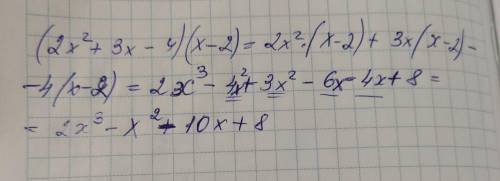 (2x² + 3x - 4)(x - 2) = 2x² · (x - 2) + 3x(x - 2) -
- 4(x - 2) = 2x³ - 4x² + 3x² - 6x - 4x + 8 =
= 2x³ - x² - 10x + 8